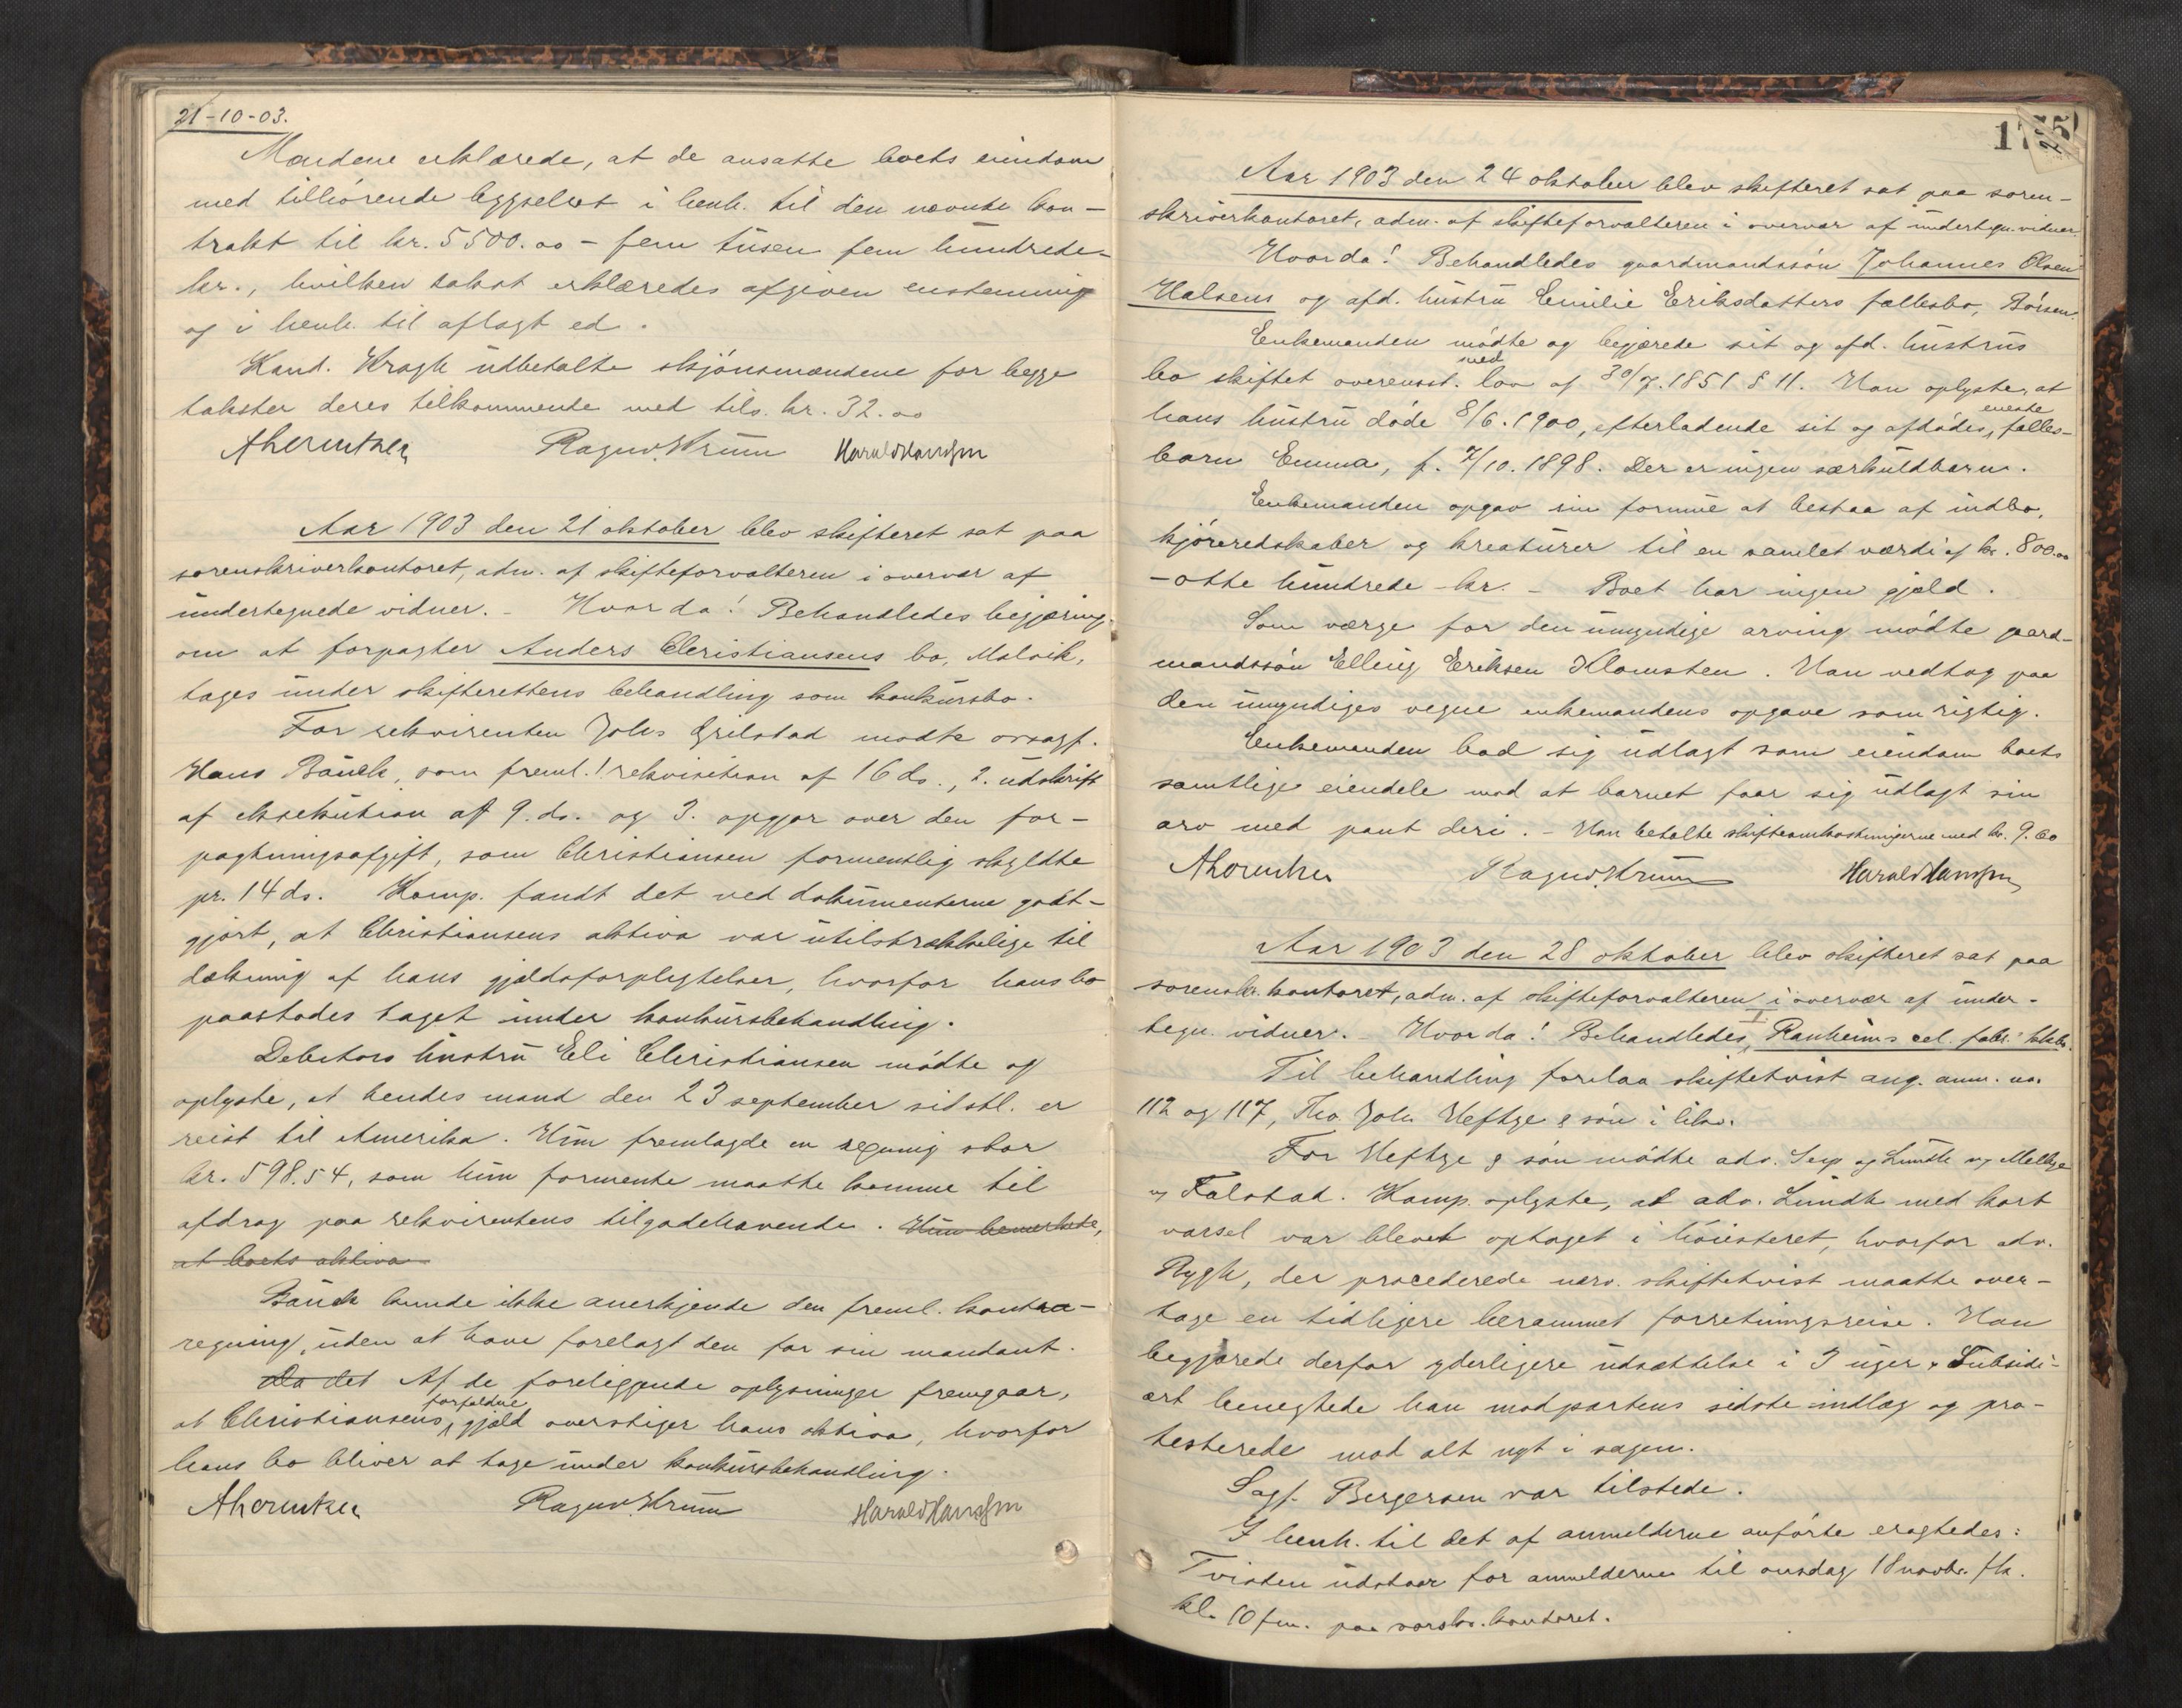 21-10-03.
Mændene erklærede, at de ansatte boets eiendom
med tilhørende byggselret i henh. til den nævnte kon-
trakt til kr. 5500.00 - fem tusen fem hundrede-
kr., hvilken takst erklæredes afgiven enstemmig
og i henh. til aflagt ed.
Kand. Kragh udbetalte skjønsmændene for begge
takster deres tilkommende med tils. kr. 32.00
Ragnv. Krum Harald Hansen
Aar 1903 den 21 oktober blev skifteret sat paa
sorenskriverkontoret, adm. af skifteforvalteren i overvær af
undertegnede vidner. - Hvorda! Behandledes begjæring
om at forpagter Anders Christiansens bo, Malvik,
tages under skifterettens behandling som konkursbo.
For rekvirenten Johs Grilstad mødte oversagf.
Hans Bauck, som freml. 1 rekvisition af 16 ds., 2. udskrift
af eksekution af 9. ds. og 3. opgjør over den for-
pagtningsafgift, som Christiansen formentlig skyldte
pr. 14 ds. Komp. fandt det ved dokumenterne godt-
gjort, at Christiansens aktiva var utilstrækkelige til
dækning af hans gjældsforpligtelser, hvorfor hans bo
paastodes taget under konkursbehandling.
Debitors hustru Eli Christiansen mødte og
oplyste, at hendes mand den 23 september sidstl. er
reist til Amerika. Hun fremlagde en regning stor
kr. 598.54, som hun formente maatte komme til
afdrag paa rekvirentens tilgodehavende. Hun bemerkede,
at boets aktiva
Bauck kunde ikke anerkjende den freml. kontra-
regning, uden at have forelagt den for sin mandant.
Da det Af de foreliggende oplysninger fremgaar,
forfaldne
at Christiansens gjæld overstiger hans aktiva, hvorfor
hans bo bliver at tage under konkursbehandling.
Ragnv. Krum Harald Hansen
175
Aar 1903 den 24 oktober blev skifteret sat paa soren-
skriverkontoret, adm. af skifteforvalteren i overvær af undertegn. vidner.
Hvorda! Behandledes gaardmandssøn Johannes Olsen
Halsens og afd. hustru Emilie Eriksdatters fællesbo, Børsen.
Enkemanden mødte og begjærede sit og afd. hustrus
med
bo skiftet overensst. lov af 30/7.1851 § 11. Han oplyste, at
eneste
hans hustru døde 8/6.1900, efterladende sit og afdødes, fælles-
barn Emma, f. 7/10.1898. Der er ingen særkuldbarn.
Enkemanden opgav sin formue at bestaa af indbo,
kjøreredskaber og kreaturer til en samlet værdi af kr. 800.00
- otte hundrede kr. - Boet har ingen gjæld.
Som værge for den umyndige arving mødte gaard-
mandssøn Elling Eriksen Klomsten. Han vedtog paa
den umyndiges vegne enkemandens opgave som rigtig.
Enkemanden bad sig udlagt som eiendom boets
samtlige eiendele mod at barnet faar sig udlagt sin
arv med pant deri. - Han betalte skifteomkostningerne med kr. 9.60
Ragnv. Krum Harald Hansen
Aar 1903 den 28 oktober blev skifteret sat paa
sorenskr. kontoret, adm. af skifteforvalteren i overvær af under-
I
tegn. vidner. - Hvorda! Behandledes, Ranheims cel. fabr. kkbo.
Til behandling forelaa skiftetvist ang. anm. no.
112 og 117, Tho. Joh. Heftye & søn i likv.
For Heftye & søn mødte adv. Serp og Lundh og Melbye
og Falstad. Komp. oplyste, at adv. Lundh med kort
varsel var blevet optaget i høiesteret, hvorfor adv.
Rygh, der procederede nærv. skiftetvist maatte over-
tage en tidligere berammet forretningsreise. Han
begjærede derfor yderligere udsættelse i 3 uger. Subsidi-
ært benegtede han modpartens sidste indlæg og pro-
testerede mod alt nyt i sagen.
Sagf. Bergersen var tilstede.
I henh. til det af anmelderne anførte eragtedes:
Tvisten udstaar for anmelderne til onsdag 18 novbr. fk.
kl. 10 fm. paa sorskr. kontoret.